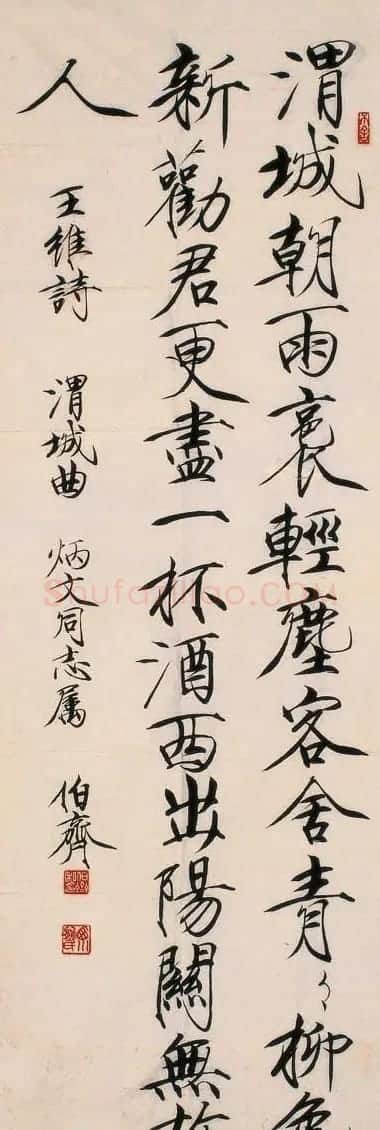 渭城朝雨裛輕塵客舍青々柳色
新勸君更盡一杯酒西出陽關無故
人
王維詩 渭城曲 炳文同志属 伯齊
Shufaziliao.COM